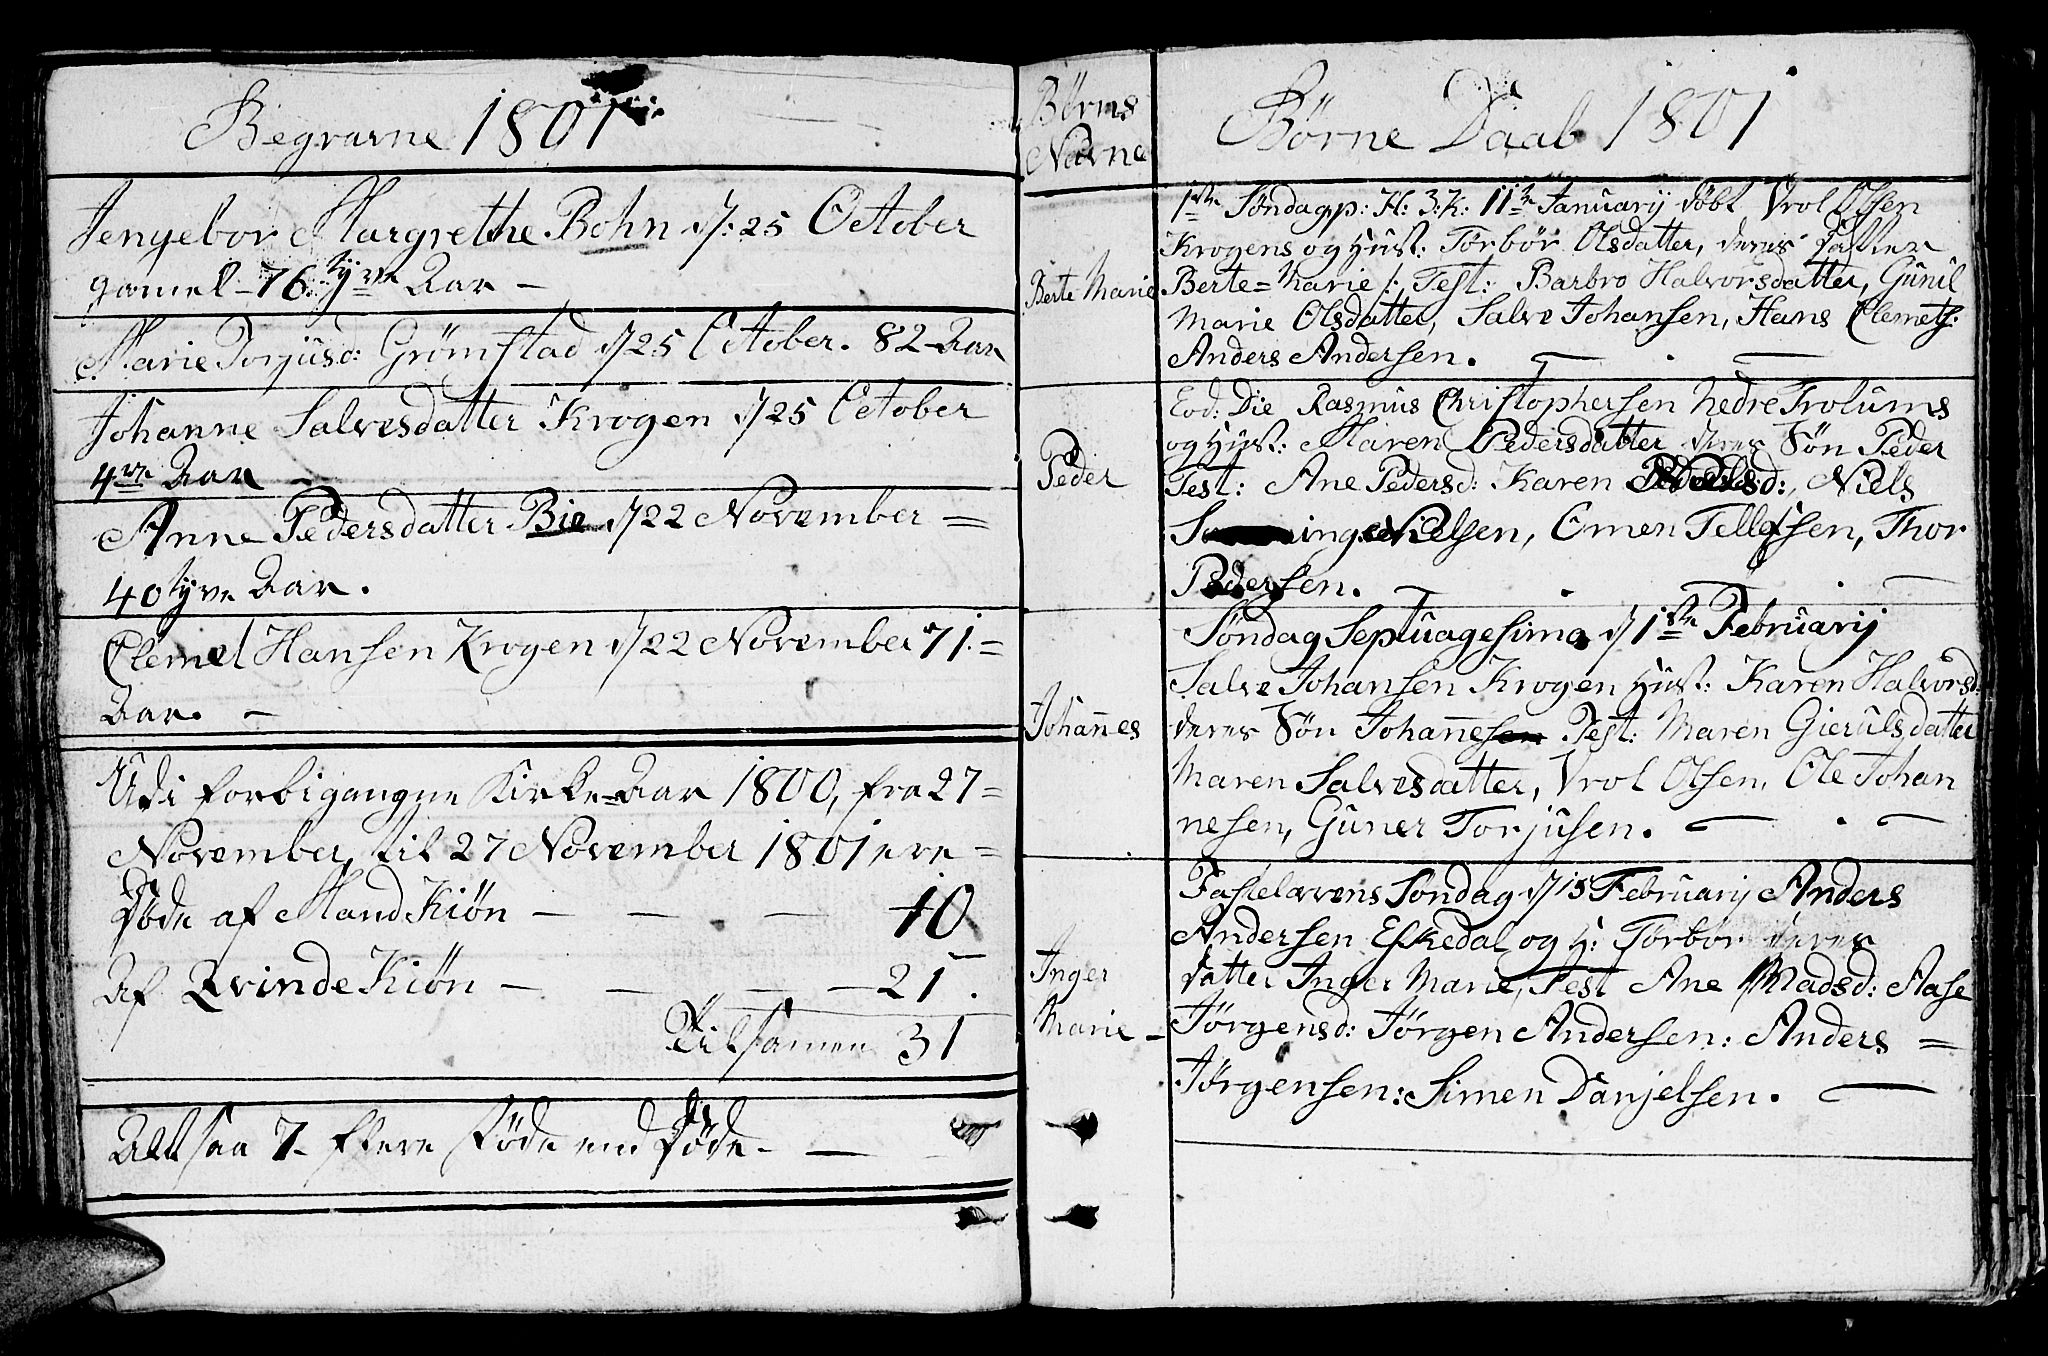 Begravne 1801
Jengebor Margrethe Bohn d: 25 October
gamel 76 tyve Aar –
Marie Torjusd: Grömstad d 25 October. 82 Aar
Johanne Salvesdatter Krogen d 25 October
4re Aar –
Anne Pedersdatter Bie d 22 November =
40 tyve Aar.
Clemet Hansen Krogen d 22 November 71. =
Aar. –
Udi forbigangne Kirke-Aar 1800, fra 27 =
November, til 27 November 1801 ere =
Döde af Mand Kiön – – – 10
Af Qvinde Kiön – – – – 21.
Tilsamen 31
Alt saa 7 flere Föde end Döde –
Börns
Navne
Börne Daab 1801
1ste Söndag p: H: 3: K: 11te Januarij döbt Vrol Olsen
Krogens og Hust: Törbör Olsdatter, deres Datter
Berte Marie
Berte = Marie /: Test: Barbro Halvorsdatter, Gunil
Marie Olsdatter, Salve Johansen, Hans Clemets:
Anders Andersen. – . –
Eod: Die Rasmus Christophersen Nedre Trolums
og Hust: Maren Pedersdatter deres Sön Peder
Peder
Test: Ane Pedersd: Karen Nielsd:, Niels
Nielsen, Omen Tellefsen, Thor
Pedersen. – . –
Söndag Septuagesima d 1ste Februarij
Salve Johansen Krogen Hust: Karen Halvorsd:
Johannes
deres Sön Johannesen Test: Maren Gierulsdatter
Maren Salvesdatter, Vrol Olsen, Ole Johan
nesen, Guner Torjusen. – . –
Fastelavens Söndag d 15 Februarij Anders
Andersen Eskedal og H: Törbör deres
Inger
Datter Inger Marie, Test Ane Madsd: Aase
Marie –
Jörgensd: Jörgen Andersen: Anders =
Jörgensen: Simen Danjelsen. –